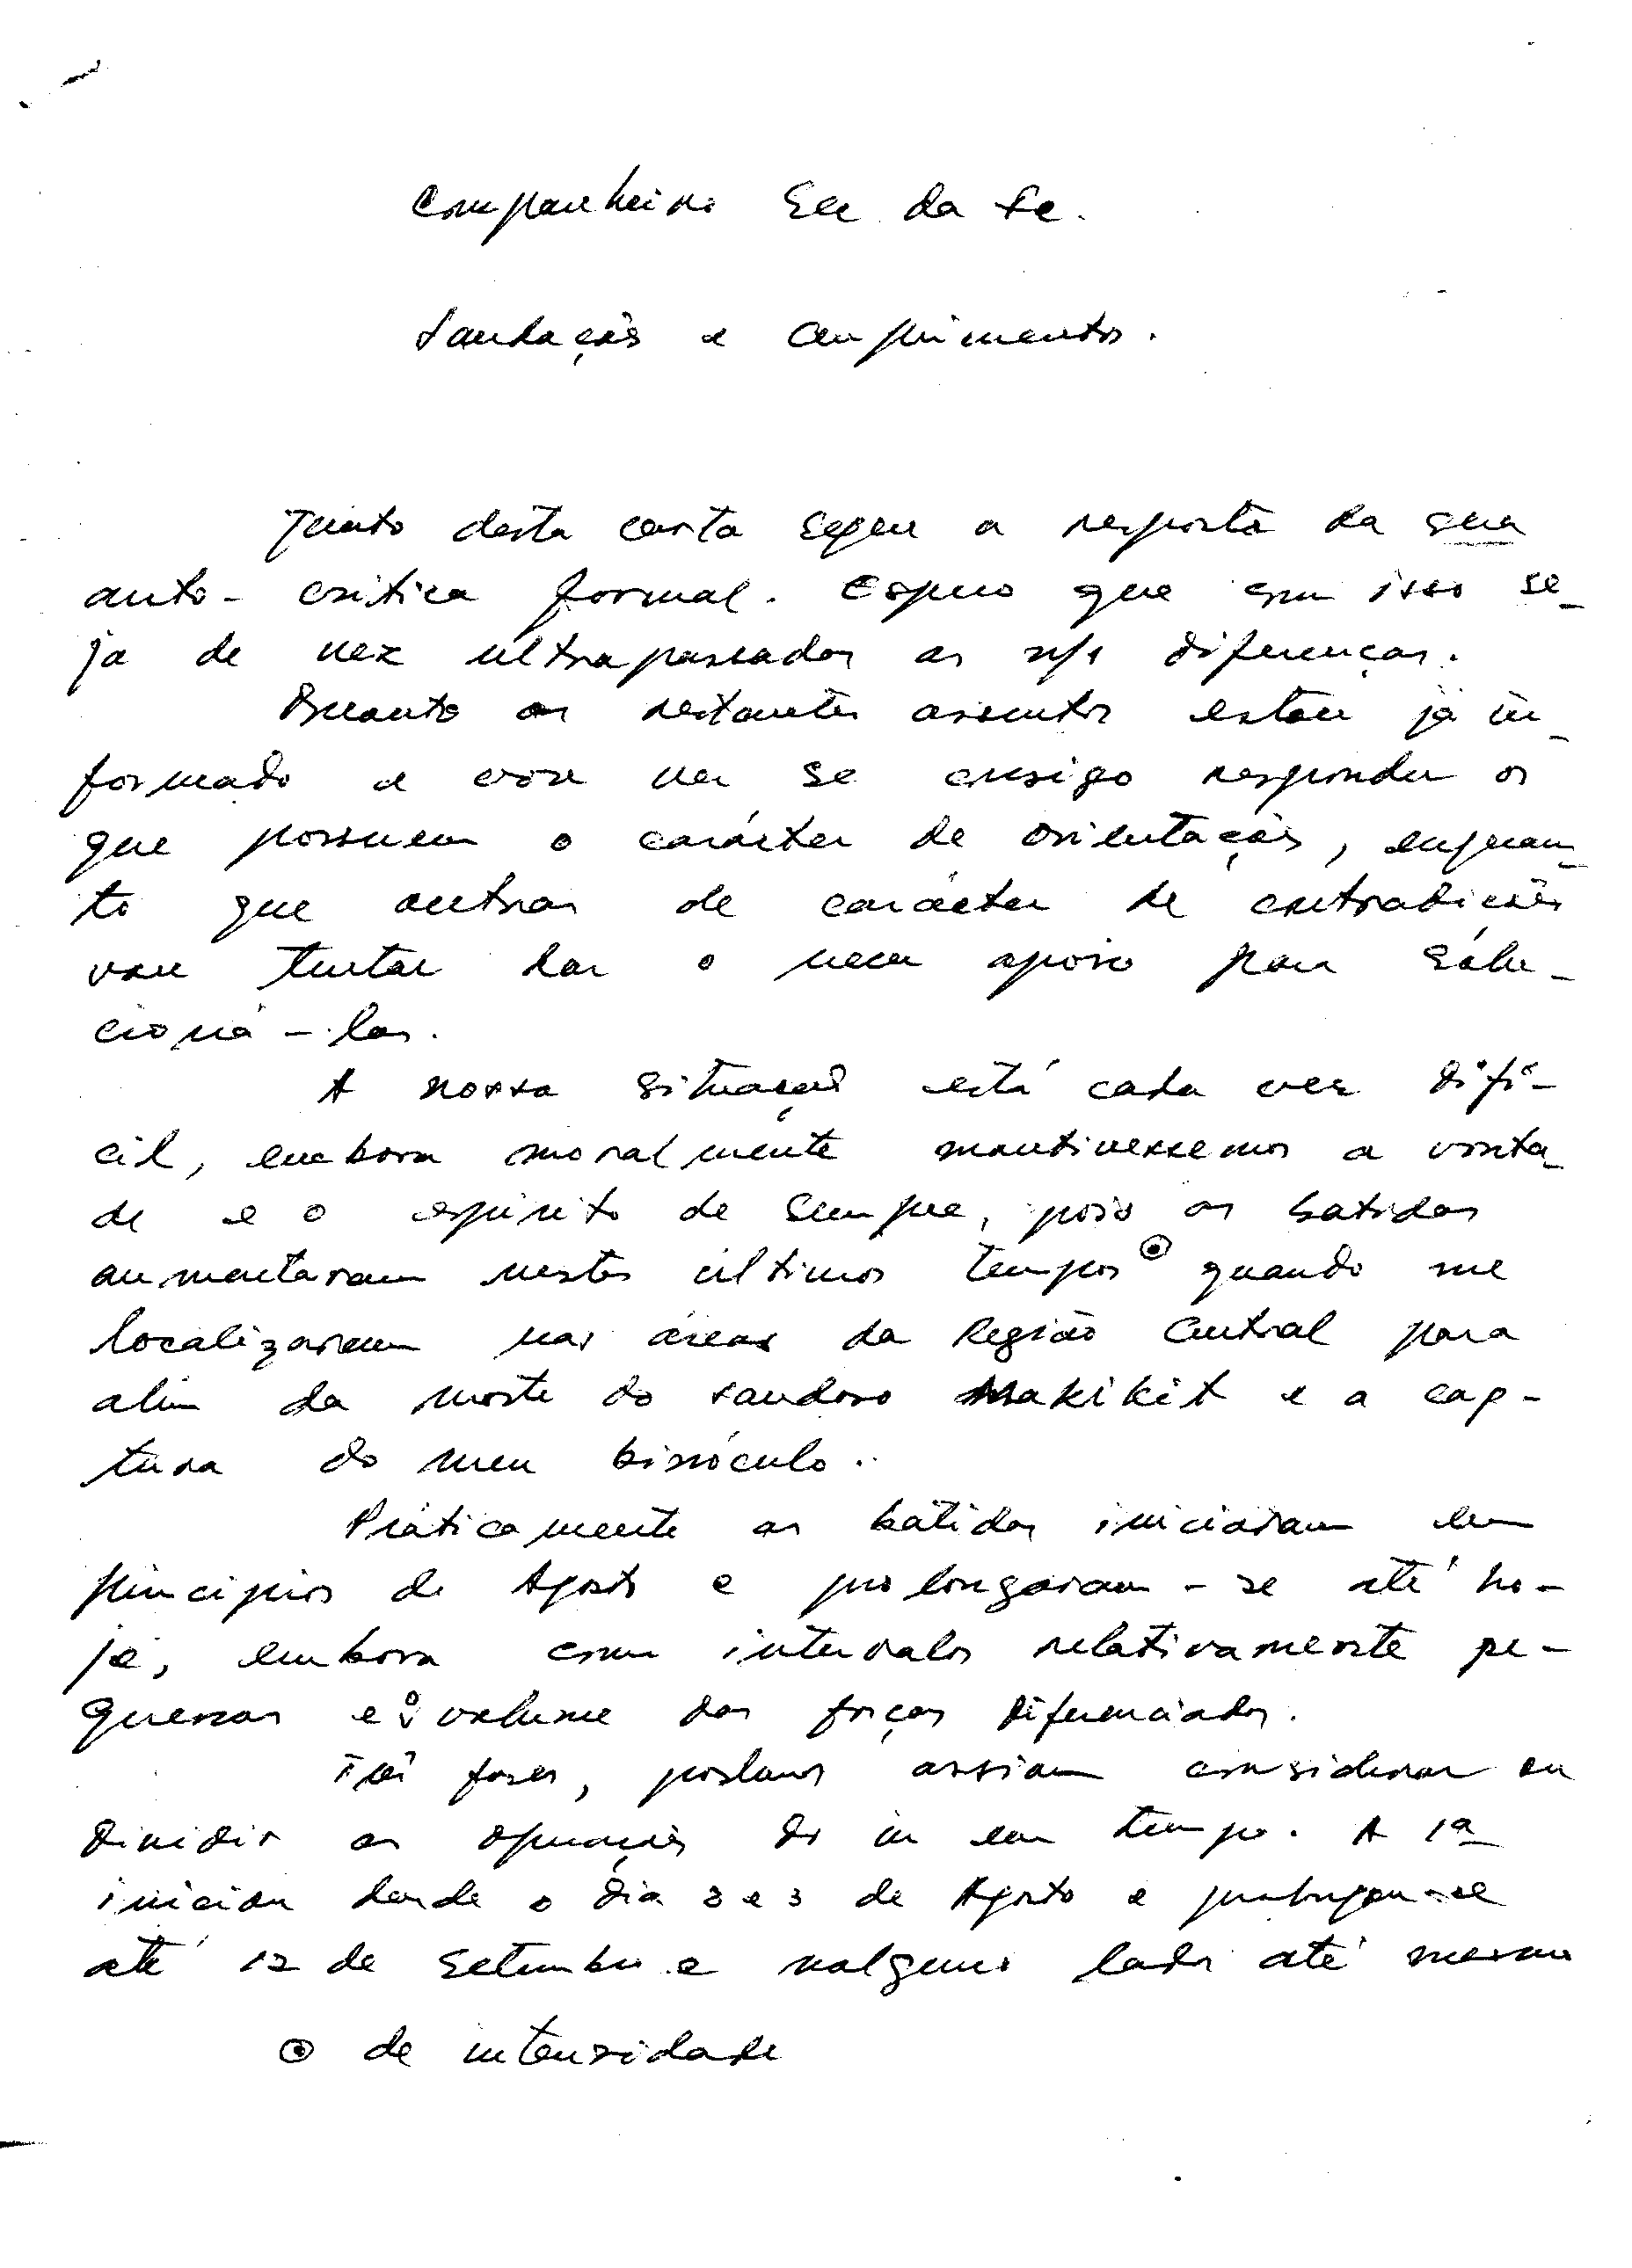 Companheiro
Saudações e cumprimentos.
Junto desta carta segue a resposta da sua
auto-crítica formal. Espero que com isso se-
ja de vez ultrapassadas as n/s diferenças.
Quanto os restantes assuntos estou já in-
formado e vou ver se consigo responder os
que possuem o carácter de orientações, enquan-
to que outras de carácter de contradições
vou tentar dar o meu apoio para solu-
cioná-las.
A nossa situação está cada vez difí-
cil, embora moralmente mantivessemos a vonta-
de e o espírito de sempre, pois as batidas
aumentaram nestes últimos tempos ⊙ quando me
localizaram nas áreas da Região Central para
além da morte do saudoso Makikit e a cap-
tura do meu binóculo.
Práticamente as batidas iniciaram em
princípios de Agosto e prolongaram-se até ho-
je, embora com intervalos relativamente pe-
quenos e o volume das forças diferenciados.
Três fases, podemos assim considerar ou
dividir as operações do in em tempo. A 1ª
iniciou desde o dia 2 e 3 de Agosto e prolongou-se
até 12 de Setembro e nalguns lados até mesmo
⊙ de intensidade